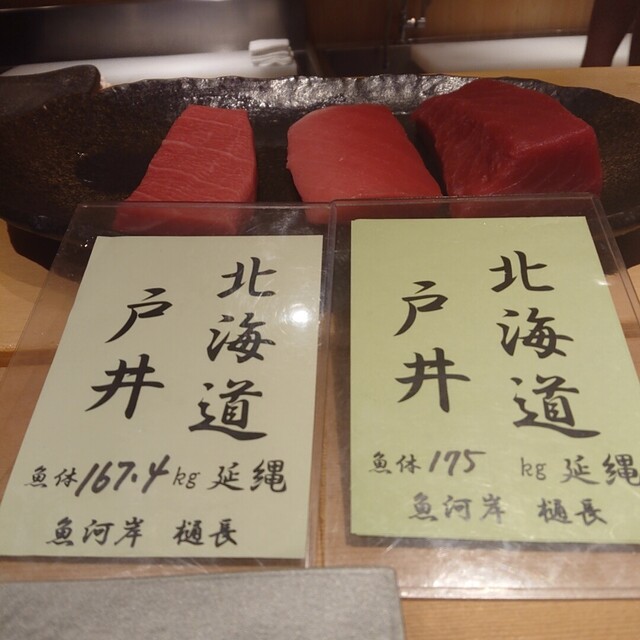 北海道
戸井
魚体167.4kg 延縄
魚河岸 樋長
北海道
戸井
魚体175 kg 延縄
魚河岸 樋長